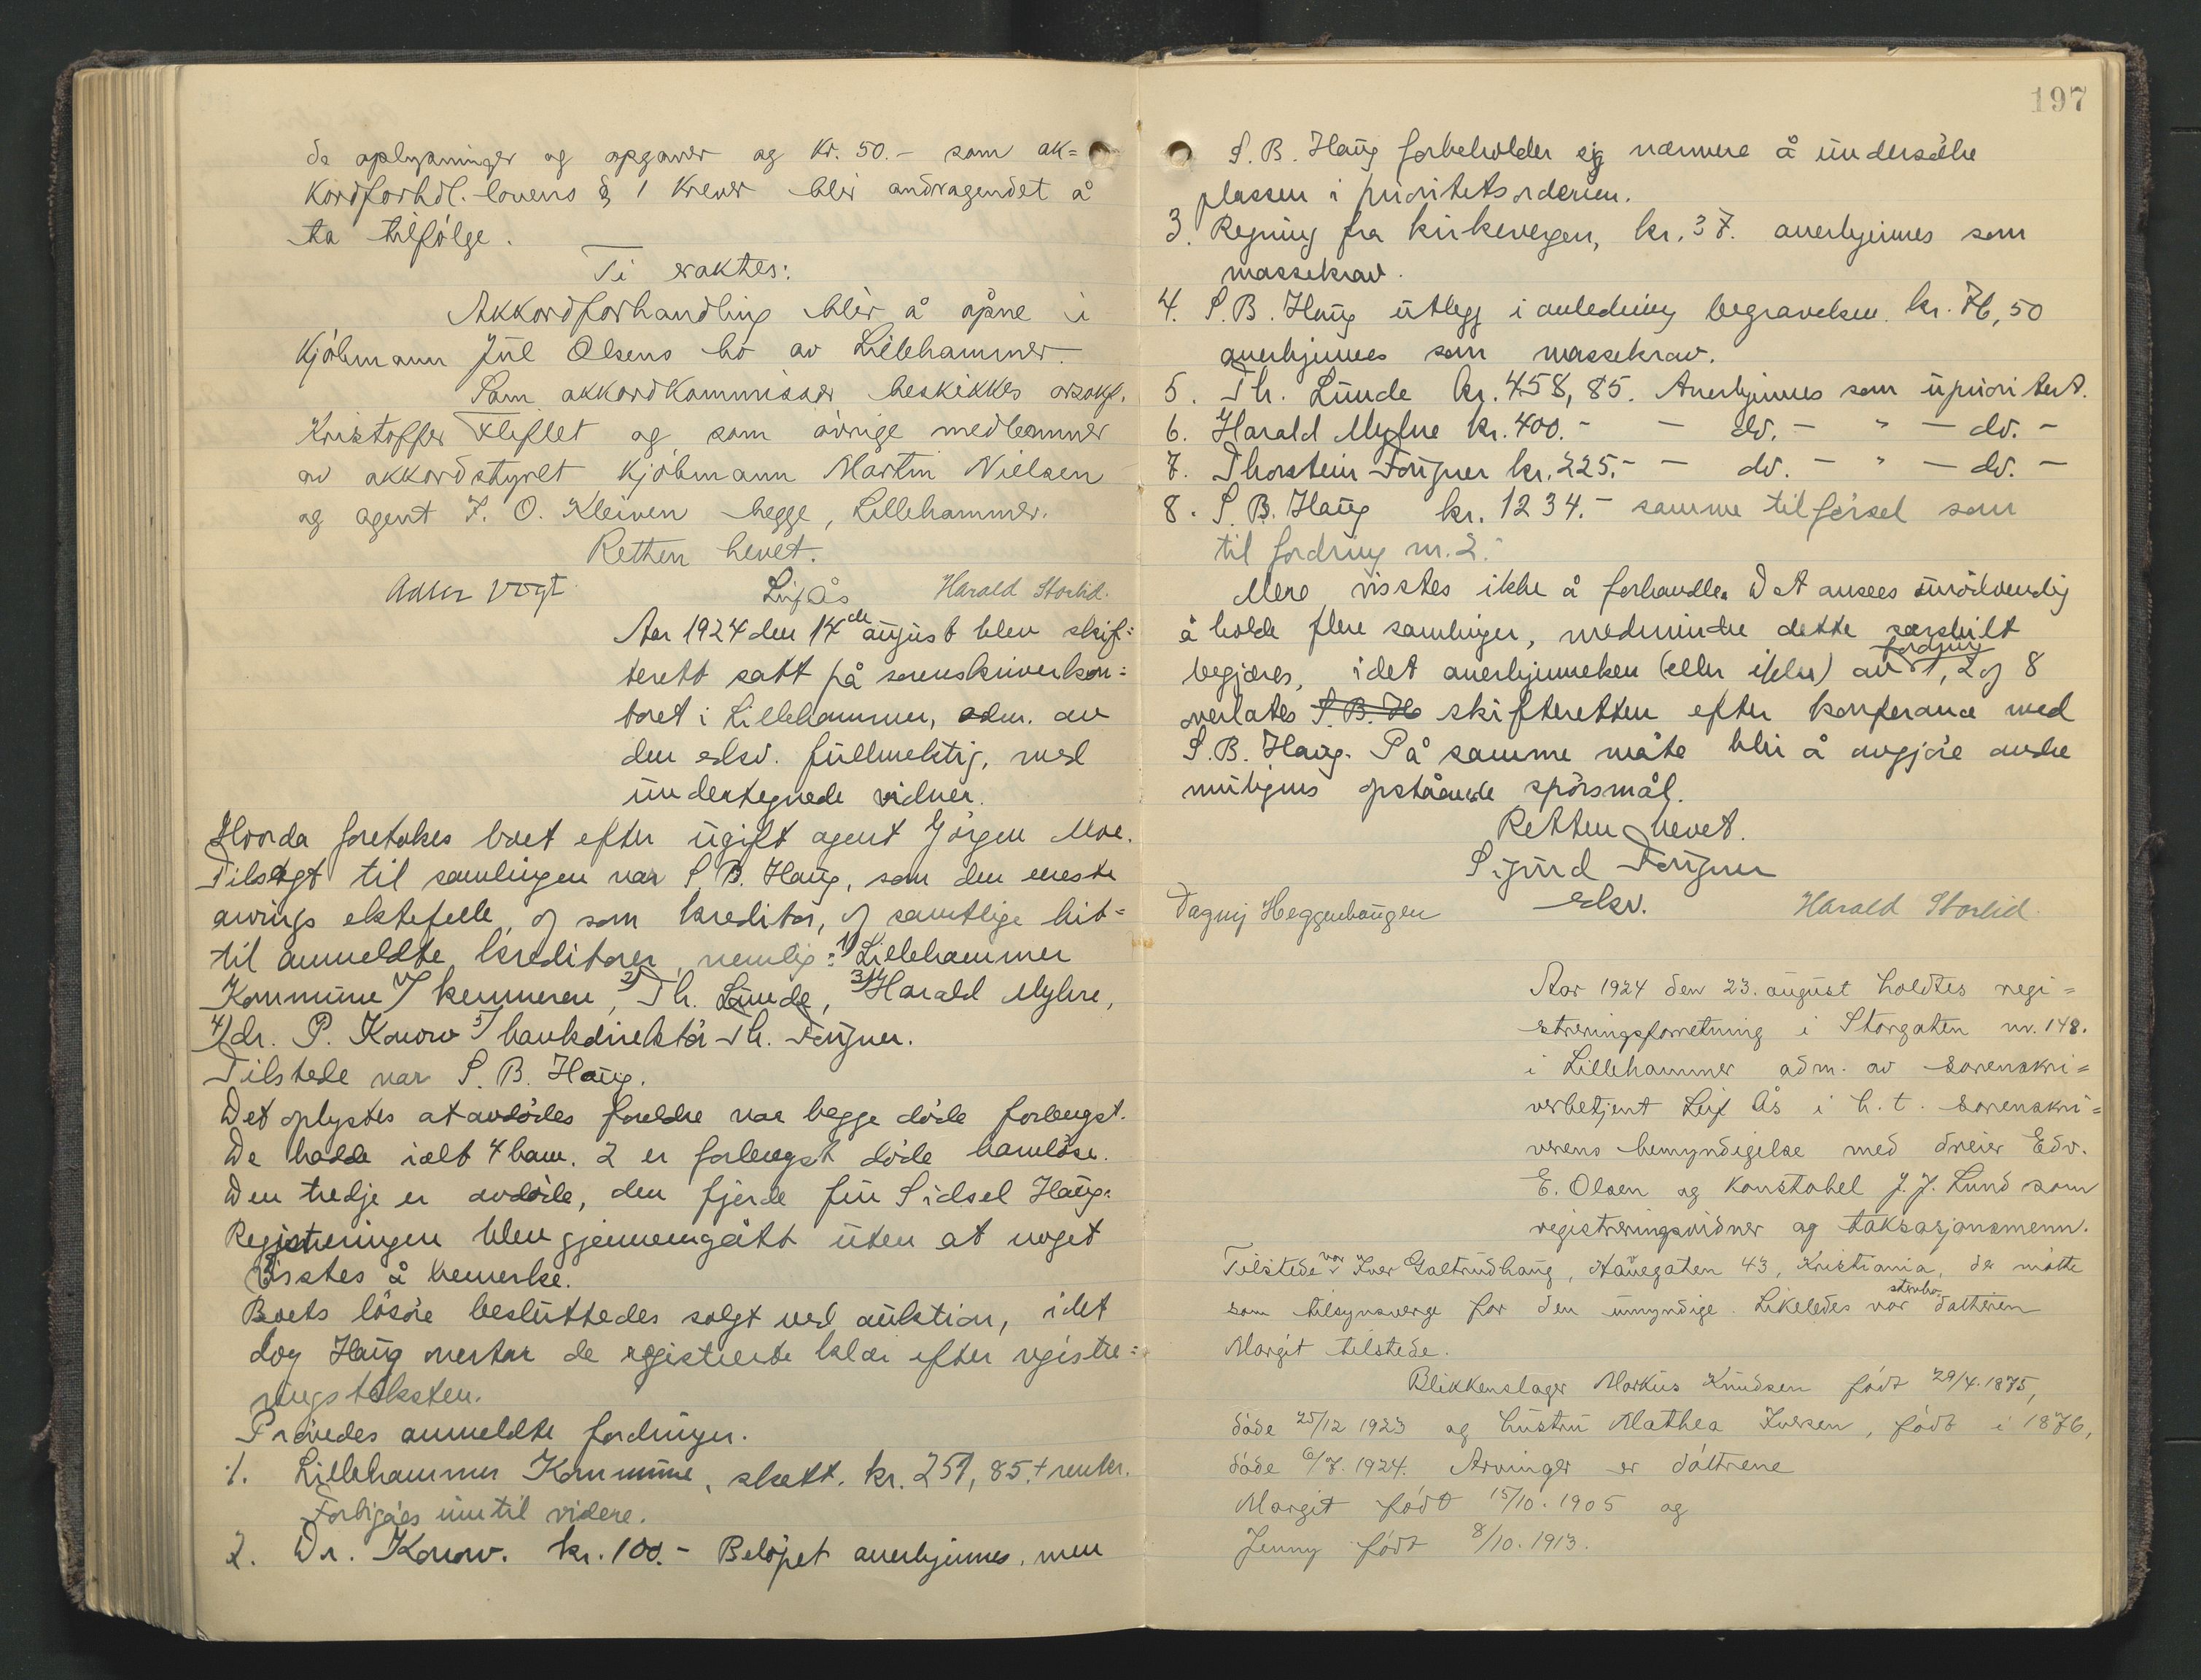 da oplysninger og opgaver og kr. 50.- som ak=
kordforhdl. lovens § 1 krever blir andragendet å
ta tilfölge.
Ti eraktes:
Akkordforhandling blir å åpne i
kjöbmann Jul Olsens bo av Lillehammer.
Som akkordkommissær beskikkes orsakf.
Kristoffer Kleflet og som övrige medlemmer
av akkordstyret kjöbmann Martin Nielsen
og agent J. O. Kleiven begge, Lillehammer.
Retten hevet.
Adler Vogt Leif Ås Harald Storlid.
Aar 1924 den 14de august blev skif=
terett satt på sorenskriverkon=
toret i Lillehammer, adm. av
den edsv. fullmektig, med
undertegnede vidner.
Hvorda foretokes boet efter ugift agent Jörgen Moe.
Tilsagt til samlingen var S. B. Haug, som den eneste
arvings ektefelle, og som kreditor, og samtlige hit=
til anmeldte kreditorer, nemlig: 1) Lillehammer
Kommune v/ kemneren, 2) Th. Lunde, 3) Harald Myhre,
4) dr. P. Konow 5) bankdirektör Th. Fougner.
Tilstede var S. B. Haug.
Det oplystes at avdödes foreldre var begge döde forlengst.
De hadde ialt 4 barn. 2 er forlengst döde barnlöse.
Den tredje er avdöde, den fjerde fru Sidsel Haug.
Registreringen blev gjennemgått uten at noget
visstes å bemerke.
Boets lösöre besluttedes solgt ved auktion, idet
dog Haug overtar de registrerte klær efter registre=
ringstaksten.
Prövedes anmeldte fordringer.
1. Lillehammer Kommune, skatt. kr. 251,85. + renter.
Forbigåes inntil videre.
2. Dr. Konow. kr. 100.- Belöpet anerkjennes, men
197
S. B. Haug forbeholder sig nærmere å undersöke
plassen i prioritetsordenen.
3. Regning fra kirkevergen, kr. 37. anerkjennes som
massekrav.
4. S. B. Haug utlegg i anledning begravelsen kr. 76,50
anerkjennes som massekrav.
5. Th. Lunde kr. 458,85. Anerkjennes som uprioritert.
6. Harald Myhre kr. 400.- - do. - " - do. -
7. Thorstein Fougner kr. 225.- - do. - " - do. -
8. S. B. Haug kr. 1234.- samme tilförsel som
til fordring nr. 2.
Mere visstes ikke å forhandle. Det ansees unödvendig
å holde flere samlinger, medmindre dette særskilt
begjæres, idet anerkjennelsen (eller ikke) av fordring 1, 2 og 8
overlates S. B. H skifteretten efter konferance med
S. B. Haug. På samme måte blir å avgjöre andre
muligens opstående spörsmål.
Retten hevet.
Sigurd Fougner
edsv.
Dagny Heggenhaugen Harald Storlid.
Aar 1924 den 23. august holdtes regi=
streringsforretning i Storgaten nr. 148.
i Lillehammer adm. av sorenskri=
verbetjent Leif Ås i h. t. sorenskri=
verens bemyndigelse med dreier Edv.
E. Olsen og konstabel J. J. Lund som
registreringsvidner og taksasjonsmenn.
Tilstede var Iver Galtrudhaug, Hauegaten 43, Kristiania, der mötte
som tilsynsverge for den umyndige. Likeledes var stervbo datteren
Margit tilstede.
Blikkenslager Markus Knudsen födt 29/4. 1875,
döde 25/12 1923 og hustru Mathea Iversen, födt i 1876,
döde 6/7. 1924. Arvinger er döttrene
Margit födt 15/10. 1905 og
Jenny födt 8/10. 1913.